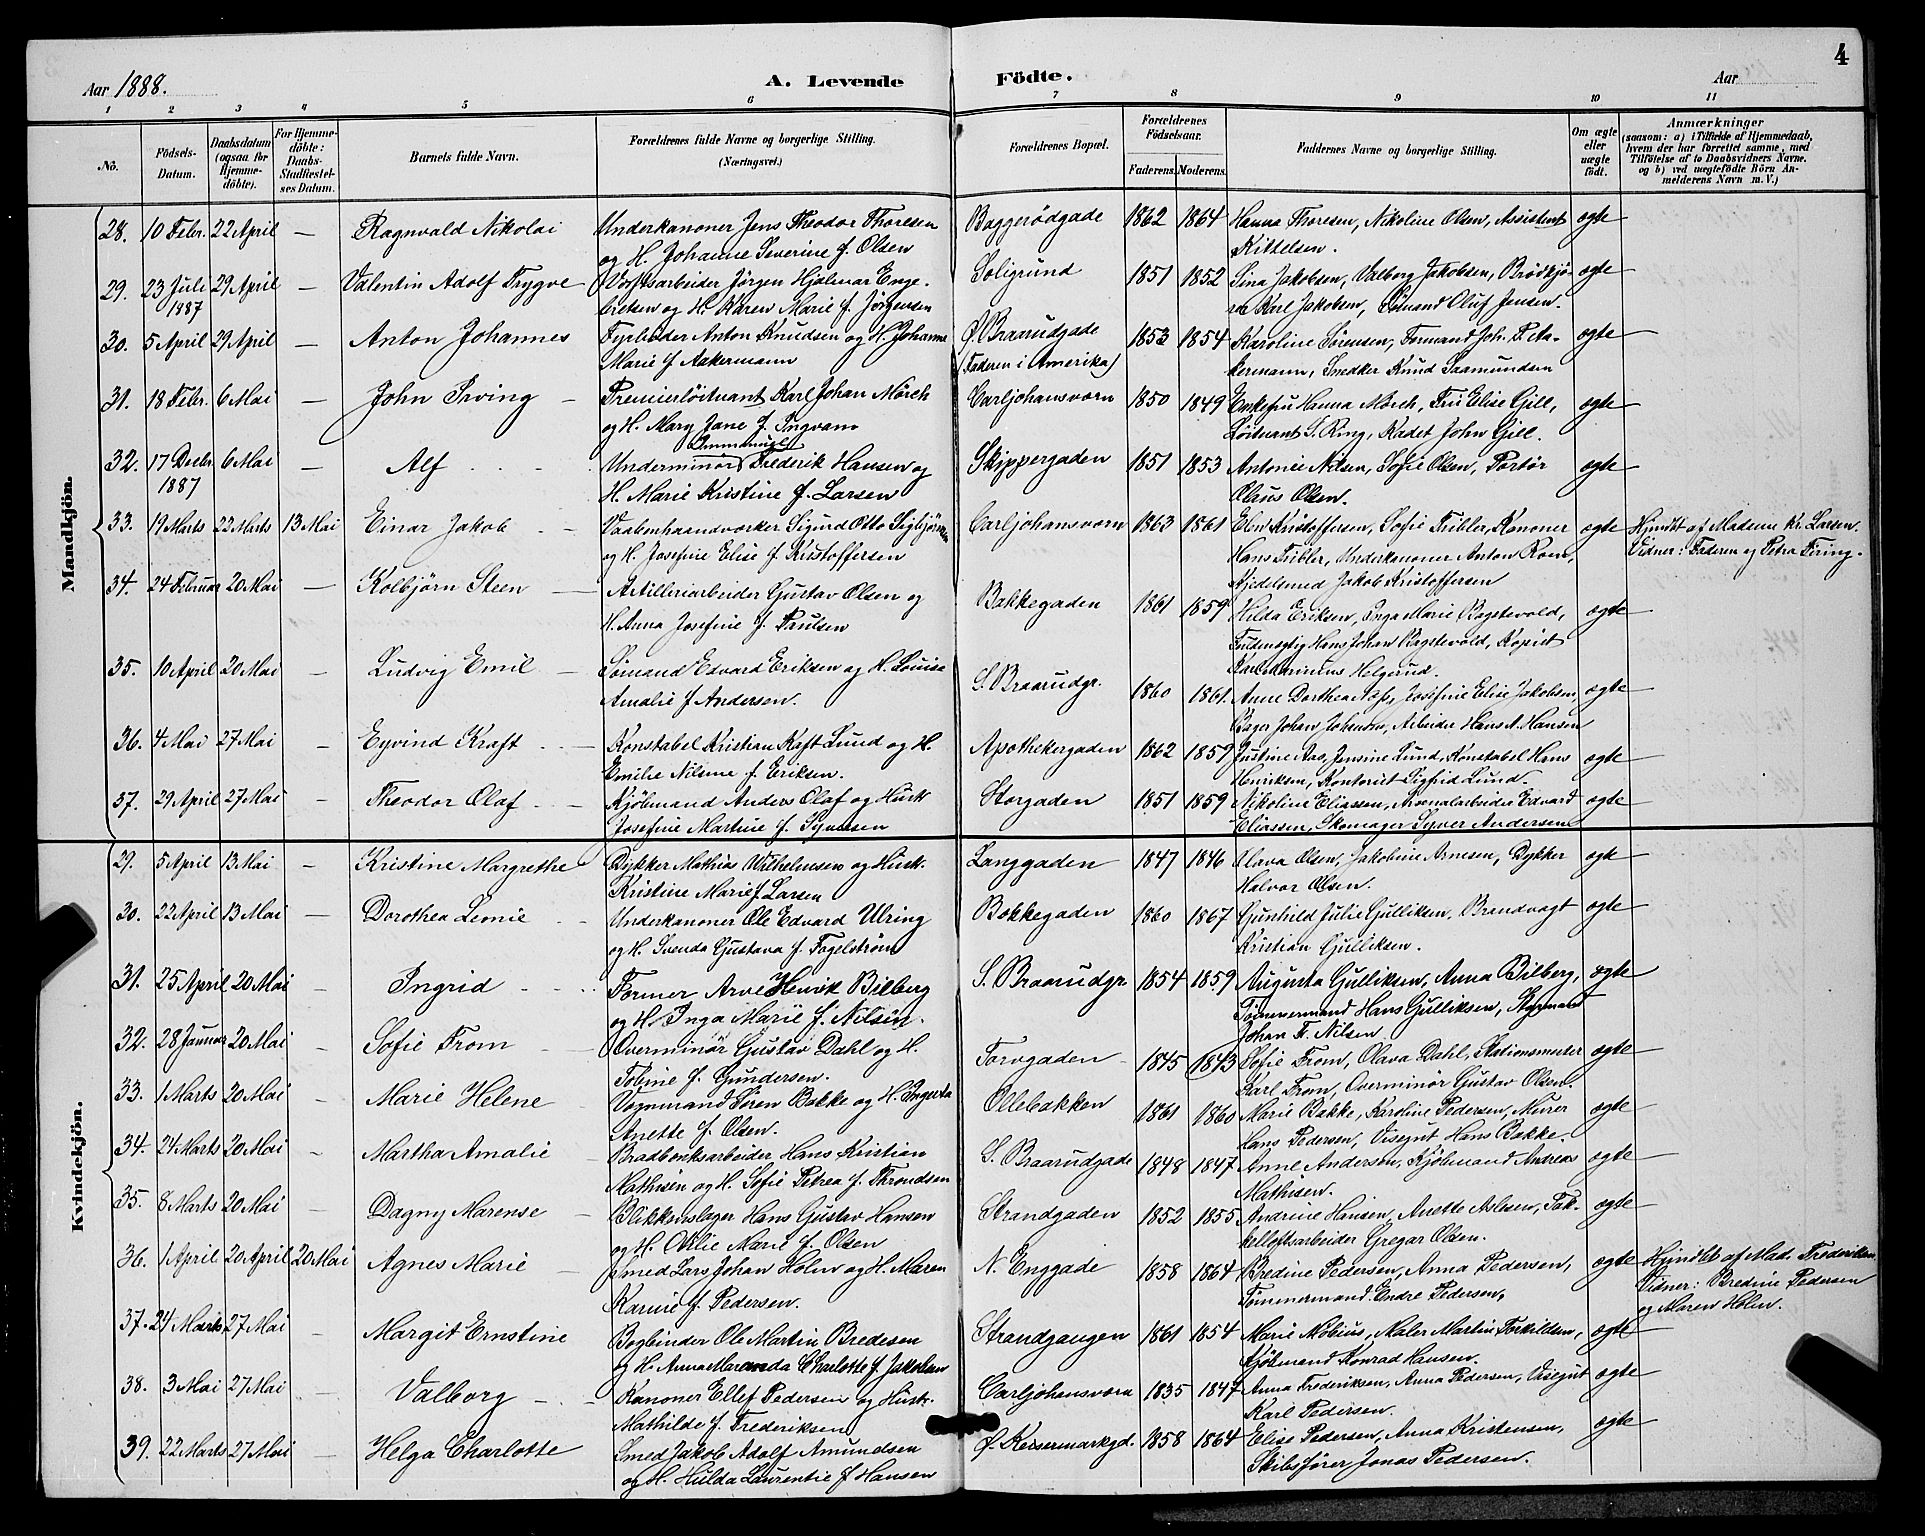 4
Aar 1888.
A. Levende Födte.
Aar
1 2 3 4 5 6 7 8 9 10 11
No.
Födsels-Datum.
Daabsdatum (ogsaa for Hjemmedöbte).
For Hjemmedöbte: Daabs-Stadfæstelses Datum.
Barnets fulde Navn.
Forældrenes fulde Navne og borgerlige Stilling. (Næringsvei.)
Forældrenes Bopæl.
Forældrenes Födselsaar.
Faderens. Moderens.
Faddernes Navne og borgerlige Stilling.
Om ægte eller uægte födt.
Anmærkninger
(saasom: a) i Tilfælde af Hjemmedaab, hvem der har forrettet samme, med Tilföielse af to Daabsvidners Navne. og b) ved uægtefödte Börn Anmelderens Navn m. V.)
Mandkjön.
28. 10 Febr. 22 April — Ragnvald Nikolai Underkanoner Jens Theodor Thoresen Baggerödgade 1862 1864 Hanna Thoresen, Nikoline Olsen, Assistent ægte
og H. Johanne Severine f. Olsen Kittelsen.
29. 23 Juli 29 April — Valentin Adolf Trygve Værftsarbeider Jörgen Hjalmar Enge- Soligrund 1851 1852 Sina Jakobsen, Valborg Jakobsen, Brödkjö- ægte
1887 bretsen og H. Karen Marie f. Jörgensen re Karl Jakobsen, Sömand Oluf Jensen.
30. 5 April 29 April — Anton Johannes Fyrböder Anton Knudsen og H. Johanne Ø. Braarudgade 1853 1854 Karoline Sørensen, Formand Joh. P. Aa- ægte
Marie f. Aakermann (Faderen i Amerika) kermann, Snedker Knud Saamundsen
31. 18 Febr. 6 Mai — John Irving — Premierløitnant Karl Johan Mörch Carljohansværn 1850 1849 Enkefru Hanna Mörch, Fru Elise Gill, ægte
og H. Mary Jane f. Ingvam Löitnant S. Ring, Kadet John Gill.
32. 17 Decbr. 6 Mai — Alf Underminör Emmanuel Frederik Hansen og Skippergaden 1851 1853 Antonie Nilsen, Sofie Olsen, Portør ægte
1887 H. Marie Kristine f. Larsen Olaus Olsen.
33. 19 Marts 22 Marts 13 Mai Einar Jakob — Vaabenhaandværker Sigurd Otto Sigbjörnsen Carljohansværn 1863 1861 Kristoffersen, Sofie Tribler, Kanoner ægte Hjmdbt af Madame Kr. Larsen.
og H. Josefine Elise f. Kristoffersen Hans Tribler, Underkanoner Anton Roen, Vidner: Faderen og Petra Firing.
Kjedelsmed Jakob Kristoffersen
34. 24 Februar 20 Mai — Kolbjörn Steen — Artilleriarbeider Gustav Olsen og Bakkegaden 1861 1859 Hilda Eriksen, Inga Marie Bagstevold, ægte
H. Anna Josefine f. Paulsen Fuldmægtig Hans Johan Bagstevold, Kopist
Karl Marinius Helgerud.
35. 10 April 20 Mai — Ludvig Emil — Sömand Edvard Eriksen og H. Louise S. Braarudgr. 1860 1861. Anne Dorthea Aass, Josefine Elise Jakobsen, ægte
Amalie f Andersen. Bager Johan Johansen, Arbeider Hans A. Hansen
36. 4 Mai 27 Mai — Eyvind Kraft — Konstabel Kristian Kaft Lund og H. Apothekergaden 1862 1859 Justine Aas, Jensine Lund, Konstabel Hans ægte
Emilie Nilsine f. Eriksen. Henriksen, Kontorist Sigfrid Lund.
37. 29 April 27 Mai — Theodor Olaf — Kjöbmand Anders Olaf og Hustr Storgaden 1851 1859 Nikoline Eliassen, Arsenalarbeider Edvard ægte
Josefine Martine f. Syversen Eliassen, Skomager Syver Andersen
Kvindekjön.
29. 5 April 13 Mai — Kristine Margrethe Dykker Mathias Wilhelmsen og Hustr. Langgaden 1847 1846 Olava Olsen, Jakobine Arnesen, Dykker ægte
Kristine Marie f Larsen Halvor Olsen.
30. 22 April 13 Mai — Dorothea Leonie Underkanoner Ole Edvard Ulring Bakkegaden 1860 1867 Gunhild Julie Gulliksen, Brandvagt ægte
og H. Svenda Gustava f. Fogelström Kristian Gulliksen.
31. 25 April 20 Mai — Ingrid Former Arve Henrik Bilberg S. Braarudgr. 1854 1859 Augusta Gulliksen, Anna Bilberg, ægte
og H. Inga Marie f. Nilsen. Tømmermand Hans Gulliksen, Styrmand
Johan Fr. Nilsen
32. 28 Januar 20 Mai — Sofie From — Overminör Gustav Dahl og H. Torvgaden 1845 1843 Sofie From, Olava Dahl, Stationsmester ægte
Tobine f. Gundersen. Karl From, Overminör Gustav Olsen.
33. 1 Marts 20 Mai — Marie Helene — Vognmand Sören Bakke og H. Ingerta Ollebakken 1861 1860 Marie Bakke, Karoline Pedersen, Murer ægte
Anette f. Olsen. Hans Pedersen, Visegut Hans Bakke.
34. 24 Marts 20 Mai — Martha Amalie — Bradbænksarbeider Hans Kristian S. Braarudgade 1848 1847 Anne Andersen, Kjöbmand Andreas ægte
Mathisen og H. Sofie Petrea f. Throndsen Mathisen.
35. 8 Marts 20 Mai — Dagny Marense — Blikkenslager Hans Gustav Hansen Strandgaden 1852 1855 Andrine Hansen, Anette Aslesen, Tak- ægte
og H. Otilie Marie f. Olsen kelloftsarbeider Gregar Olsen.
36. 1 April 20 April 20 Mai Agnes Marie — Smed Lars Johan Holm og H. Maren N. Enggade 1858 1864 Bredine Pedersen, Anna Pedersen, ægte Hjmdbt af Mad. Frederiksen
Karine f. Pedersen. Tömmermand Endre Pedersen, Vidner: Bredine Pedersen
og Maren Holm.
37. 24 Marts 27 Mai — Margit Ernstine Bogbinder Ole Martin Bredesen Strandgangen 1861 1854 Marie Möbius, Maler Martin Torkildsen, ægte
og H. Anna Maranda Charlotte f. Jakobsen Kjöbmand Konrad Hansen.
38. 3 Mai 27 Mai — Valborg — Kanoner Ellef Pedersen og Hustr. Carljohansværn 1835 1847 Anna Frederiksen, Anna Pedersen, Visegut ægte
Mathilde f. Frederiksen Karl Pedersen.
39. 22 Marts 27 Mai — Helga Charlotte Smed Jakob Adolf Amundsen Ø. Keisermarkgd. 1858 1864 Elise Pedersen, Anna Kristensen, ægte
og H. Hulda Laurentie f Hansen Skibsfører Jonas Pedersen.